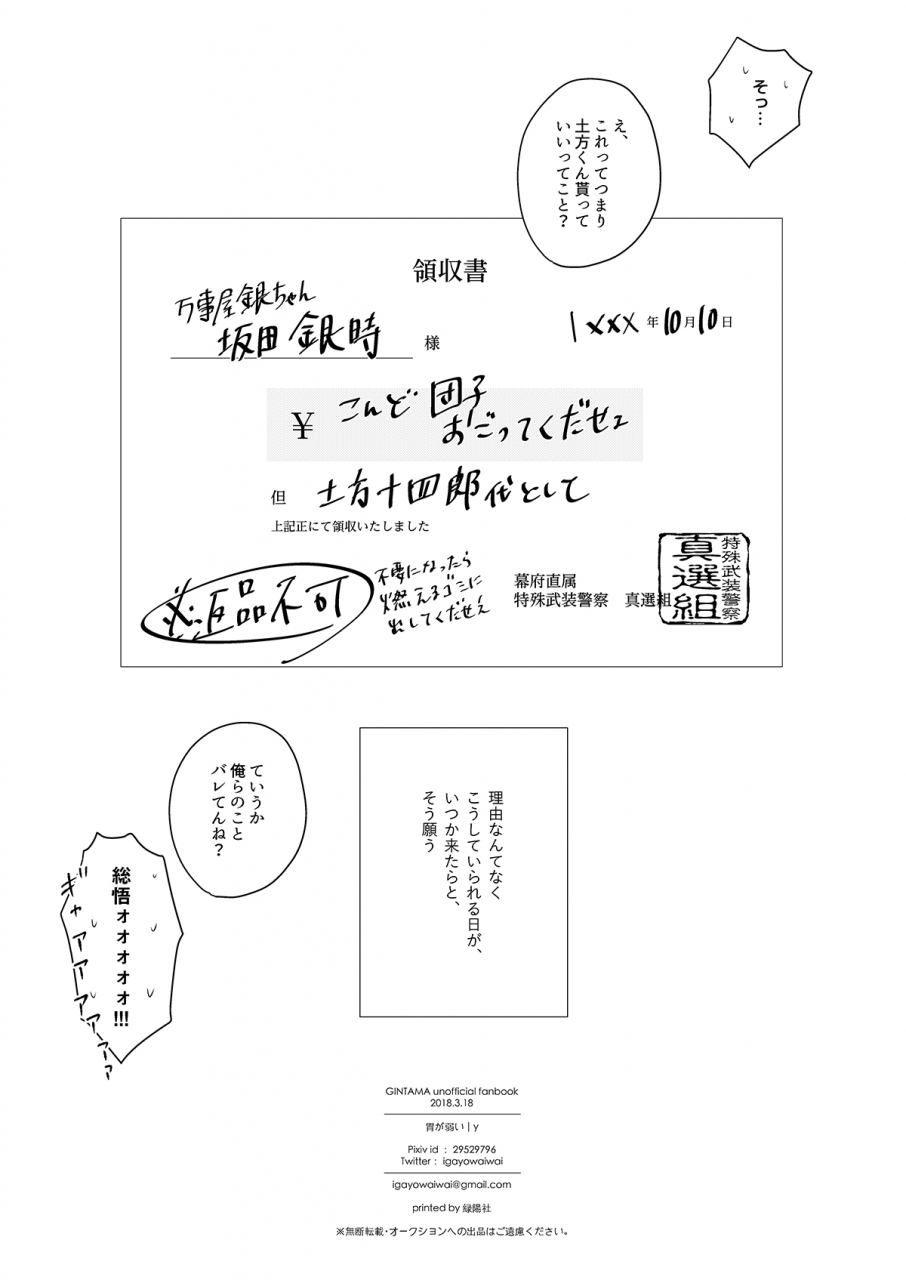 そっ…
え、
これってつまり
土方くん貰って
いいってこと?
領収書
万事屋銀ちゃん
坂田銀時 様
1xxx年10月10日
¥ こんど団子
おごってくだせェ
但 土方十四郎代として
上記正にて領収いたしました
※返品不可
不要になったら
燃えるゴミに
出してくだせェ
幕府直属
特殊武装警察 真選組
特殊武装警察
真選組
理由なんてなく
こうしていられる日が、
いつか来たらと、
そう願う
ていうか
俺らのこと
バレてんね?
総悟ォォォォォ!!!
ギャアアアアァァァ
GINTAMA unofficial fanbook
2018.3.18
胃が弱い | y
Pixiv id : 29529796
Twitter : igayowaiwai
igayowaiwai@gmail.com
printed by 緑陽社
※無断転載・オークションへの出品はご遠慮ください。